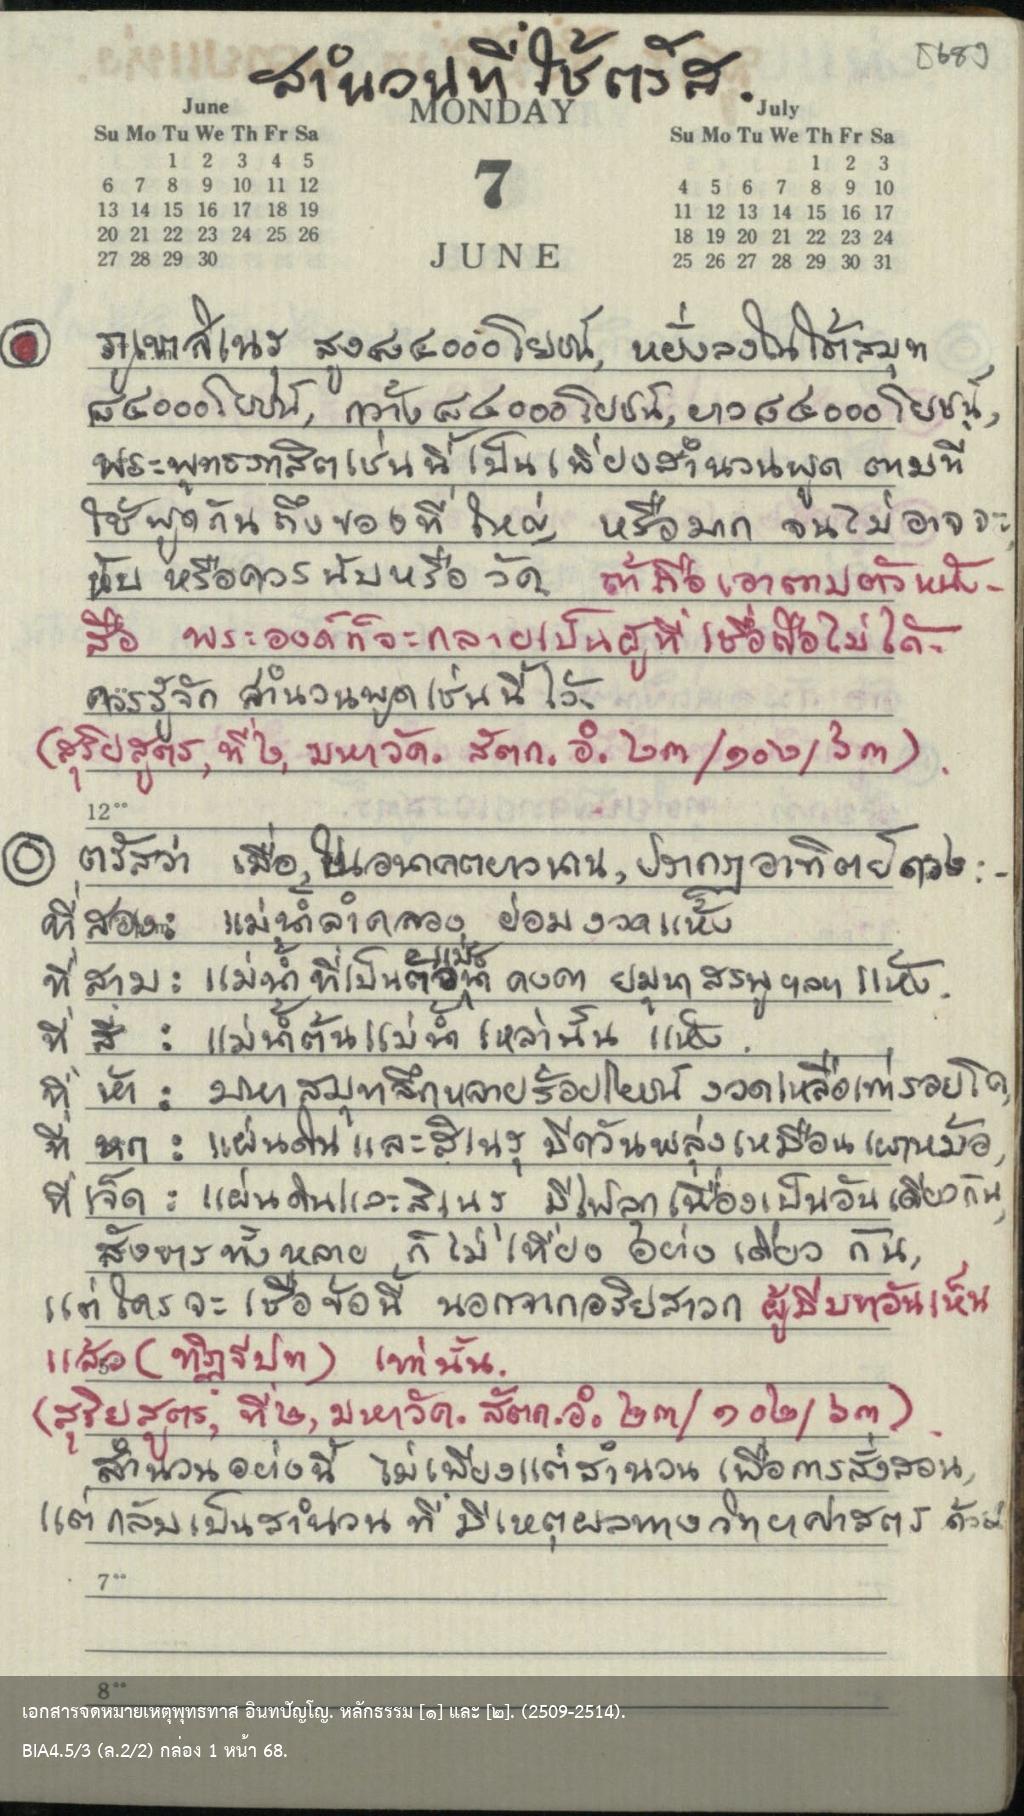 [68]
สำนวนที่ใช้ตรัส.
June
MONDAY
July
Su Mo Tu We Th Fr Sa
Su Mo Tu We Th Fr Sa
1 2 3 4 5
1 2 3
6 7 8 9 10 11 12
7
4 5 6 7 8 9 10
13 14 15 16 17 18 19
11 12 13 14 15 16 17
20 21 22 23 24 25 26
18 19 20 21 22 23 24
27 28 29 30
JUNE
25 26 27 28 29 30 31
ภูเขาสิเนรุ สูง๘๔๐๐๐โยชน์, หยั่งลงในใต้สมุท
๘๔๐๐๐โยชน์, กว้าง๘๔๐๐๐โยชน์, ยาว๘๔๐๐๐โยชน์,
พระพุทธภาสิตเช่นนี้ เป็นเพียงสำนวนพูด ตามที่
ใช้พูดกันถึงของที่ใหญ่ หรือมาก จนไม่อาจจะ
นับ หรือควรนับหรือ วัด. ถ้าถือเอาตามตัวหนัง-
สือ พระองค์ก็จะกลายเป็นผู้ที่เชื่อถือไม่ได้.
ควรรู้จัก สำนวนพูดเช่นนี้ ไว้.
(สุริยสูตร, ที่๒, มหาวัค. สัตก. อํ. ๒๓/๑๐๒/๖๓).
12°°
ตรัสว่า เมื่อ, ในอนาคตยาวนาน, ปรากฏอาทิตย์ดวง :-
ที่สอง: แม่น้ำลำคลอง ย่อมงวดแห้ง
ที่สาม: แม่น้ำที่เป็นตัวแม่น้ำ คงคา ยมุนา สรพู ฯลฯ แห้ง.
ที่ สี่ : แม่น้ำต้นแม่น้ำ เหล่านั้น แห้ง.
ที่ ห้า : มหาสมุทลึกหลายร้อยโยชน์ งวดเหลือเท่ารอยโค,
ที่ หก : แผ่นดิน และสิเนรุ มีควันพลุ่งเหมือนเผาหม้อ,
ที่เจ็ด : แผ่นดินและสิเนรุ มีไฟลุกเนื่องเป็นอันเดียวกัน,
สังขารทั้งหลาย ก็ไม่เที่ยง อย่างเดียวกัน,
แต่ใครจะ เชื่อข้อนี้ นอกจากอริยสาวก ผู้มีบทอันเห็น
แล้ว (ทิฏฐปท) เท่านั้น.
(สุริยสูตร, ที่๒, มหาวัค. สัตก.อํ. ๒๓/๑๐๒/๖๓).
สำนวนอย่างนี้ ไม่เพียงแต่สำนวน เพื่อการสั่งสอน,
แต่กลับเป็นสำนวน ที่ มีเหตุผลทางวิทยาศาสตร ด้วย
7°°
8°°
เอกสารจดหมายเหตุพุทธทาส อินทปัญโญ. หลักธรรม [๑] และ [๒]. (2509-2514).
BIA4.5/3 (ล.2/2) กล่อง 1 หน้า 68.